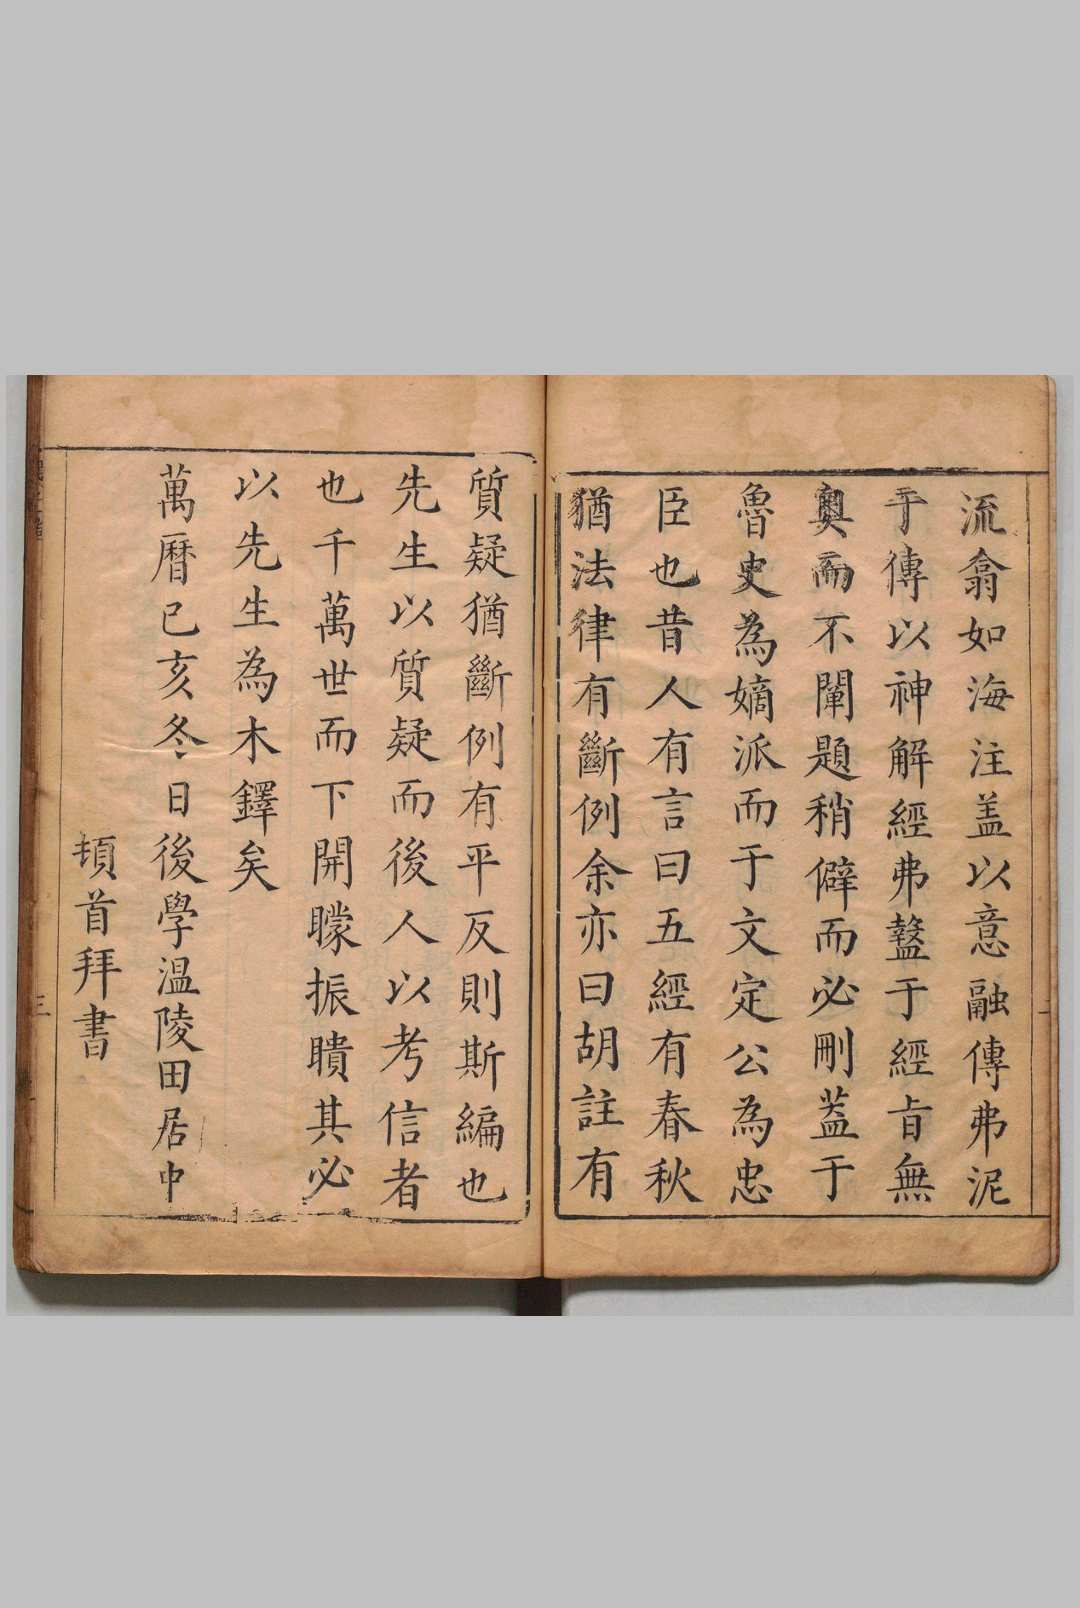 流翕如海注盖以意融傳弗泥
于傳以神解經弗盭于經旨無
奧而不闡題稍僻而必刪蓋于
魯史為嫡派而于文定公為忠
臣也昔人有言曰五經有春秋
猶法律有斷例余亦曰胡註有
質疑猶斷例有平反則斯編也
先生以質疑而後人以考信者
也千萬世而下開矇振瞶其必
以先生為木鐸矣
萬曆已亥冬日後學溫陵田居中
頓首拜書
三